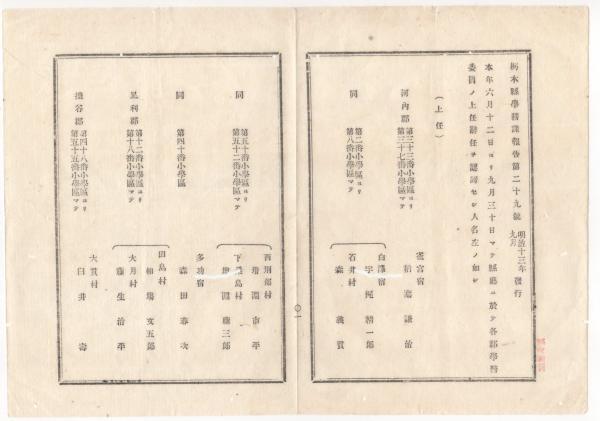 栃木縣學務課報告第二十九號 明治十三年九月 發行
本年六月十二日ヨリ九月三十日マテ縣廳ニ於テ各郡學務
委員ノ上任辭任ヲ認諾セシ人名左ノ如シ
(上任)
河內郡 第三十三番小學區ヨリ第三十七番小學區マテ
雀宮宿
同 第二番小學區 第八番小學區
白澤宿
宇梶精一郎
石井村
森 義質
〇一
同 第五十番小學區ヨリ第五十二番小學區マテ
西刑部村
增淵市平
下桑島村
增淵藤三郎
同 第四十番小學區
多功宿
森田喜次
足利郡 第十二番小學區ヨリ第十八番小學區マテ
田島村
相場友五郎
大月村
藤生治平
鹽谷郡 第四十八番小學區ヨリ第五十五番小學區マテ
大貫村
臼井 壽